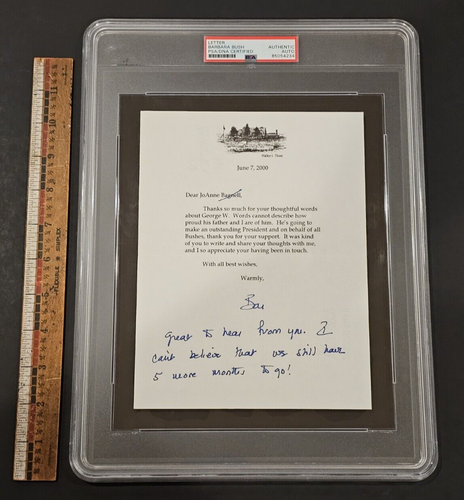 LETTER
BARBARA BUSH
PSA/DNA CERTIFIED
AUTHENTIC
AUTO
85054234
Walker's Point
June 7, 2000
Dear JoAnne Bagnell,
Thanks so much for your thoughtful words
about George W. Words cannot describe how
proud his father and I are of him. He's going to
make an outstanding President and on behalf of all
Bushes, thank you for your support. It was kind
of you to write and share your thoughts with me,
and I so appreciate your having been in touch.
With all best wishes,
Warmly,
Bar
Great to hear from you. I
can't believe that we still have
5 more months to go!